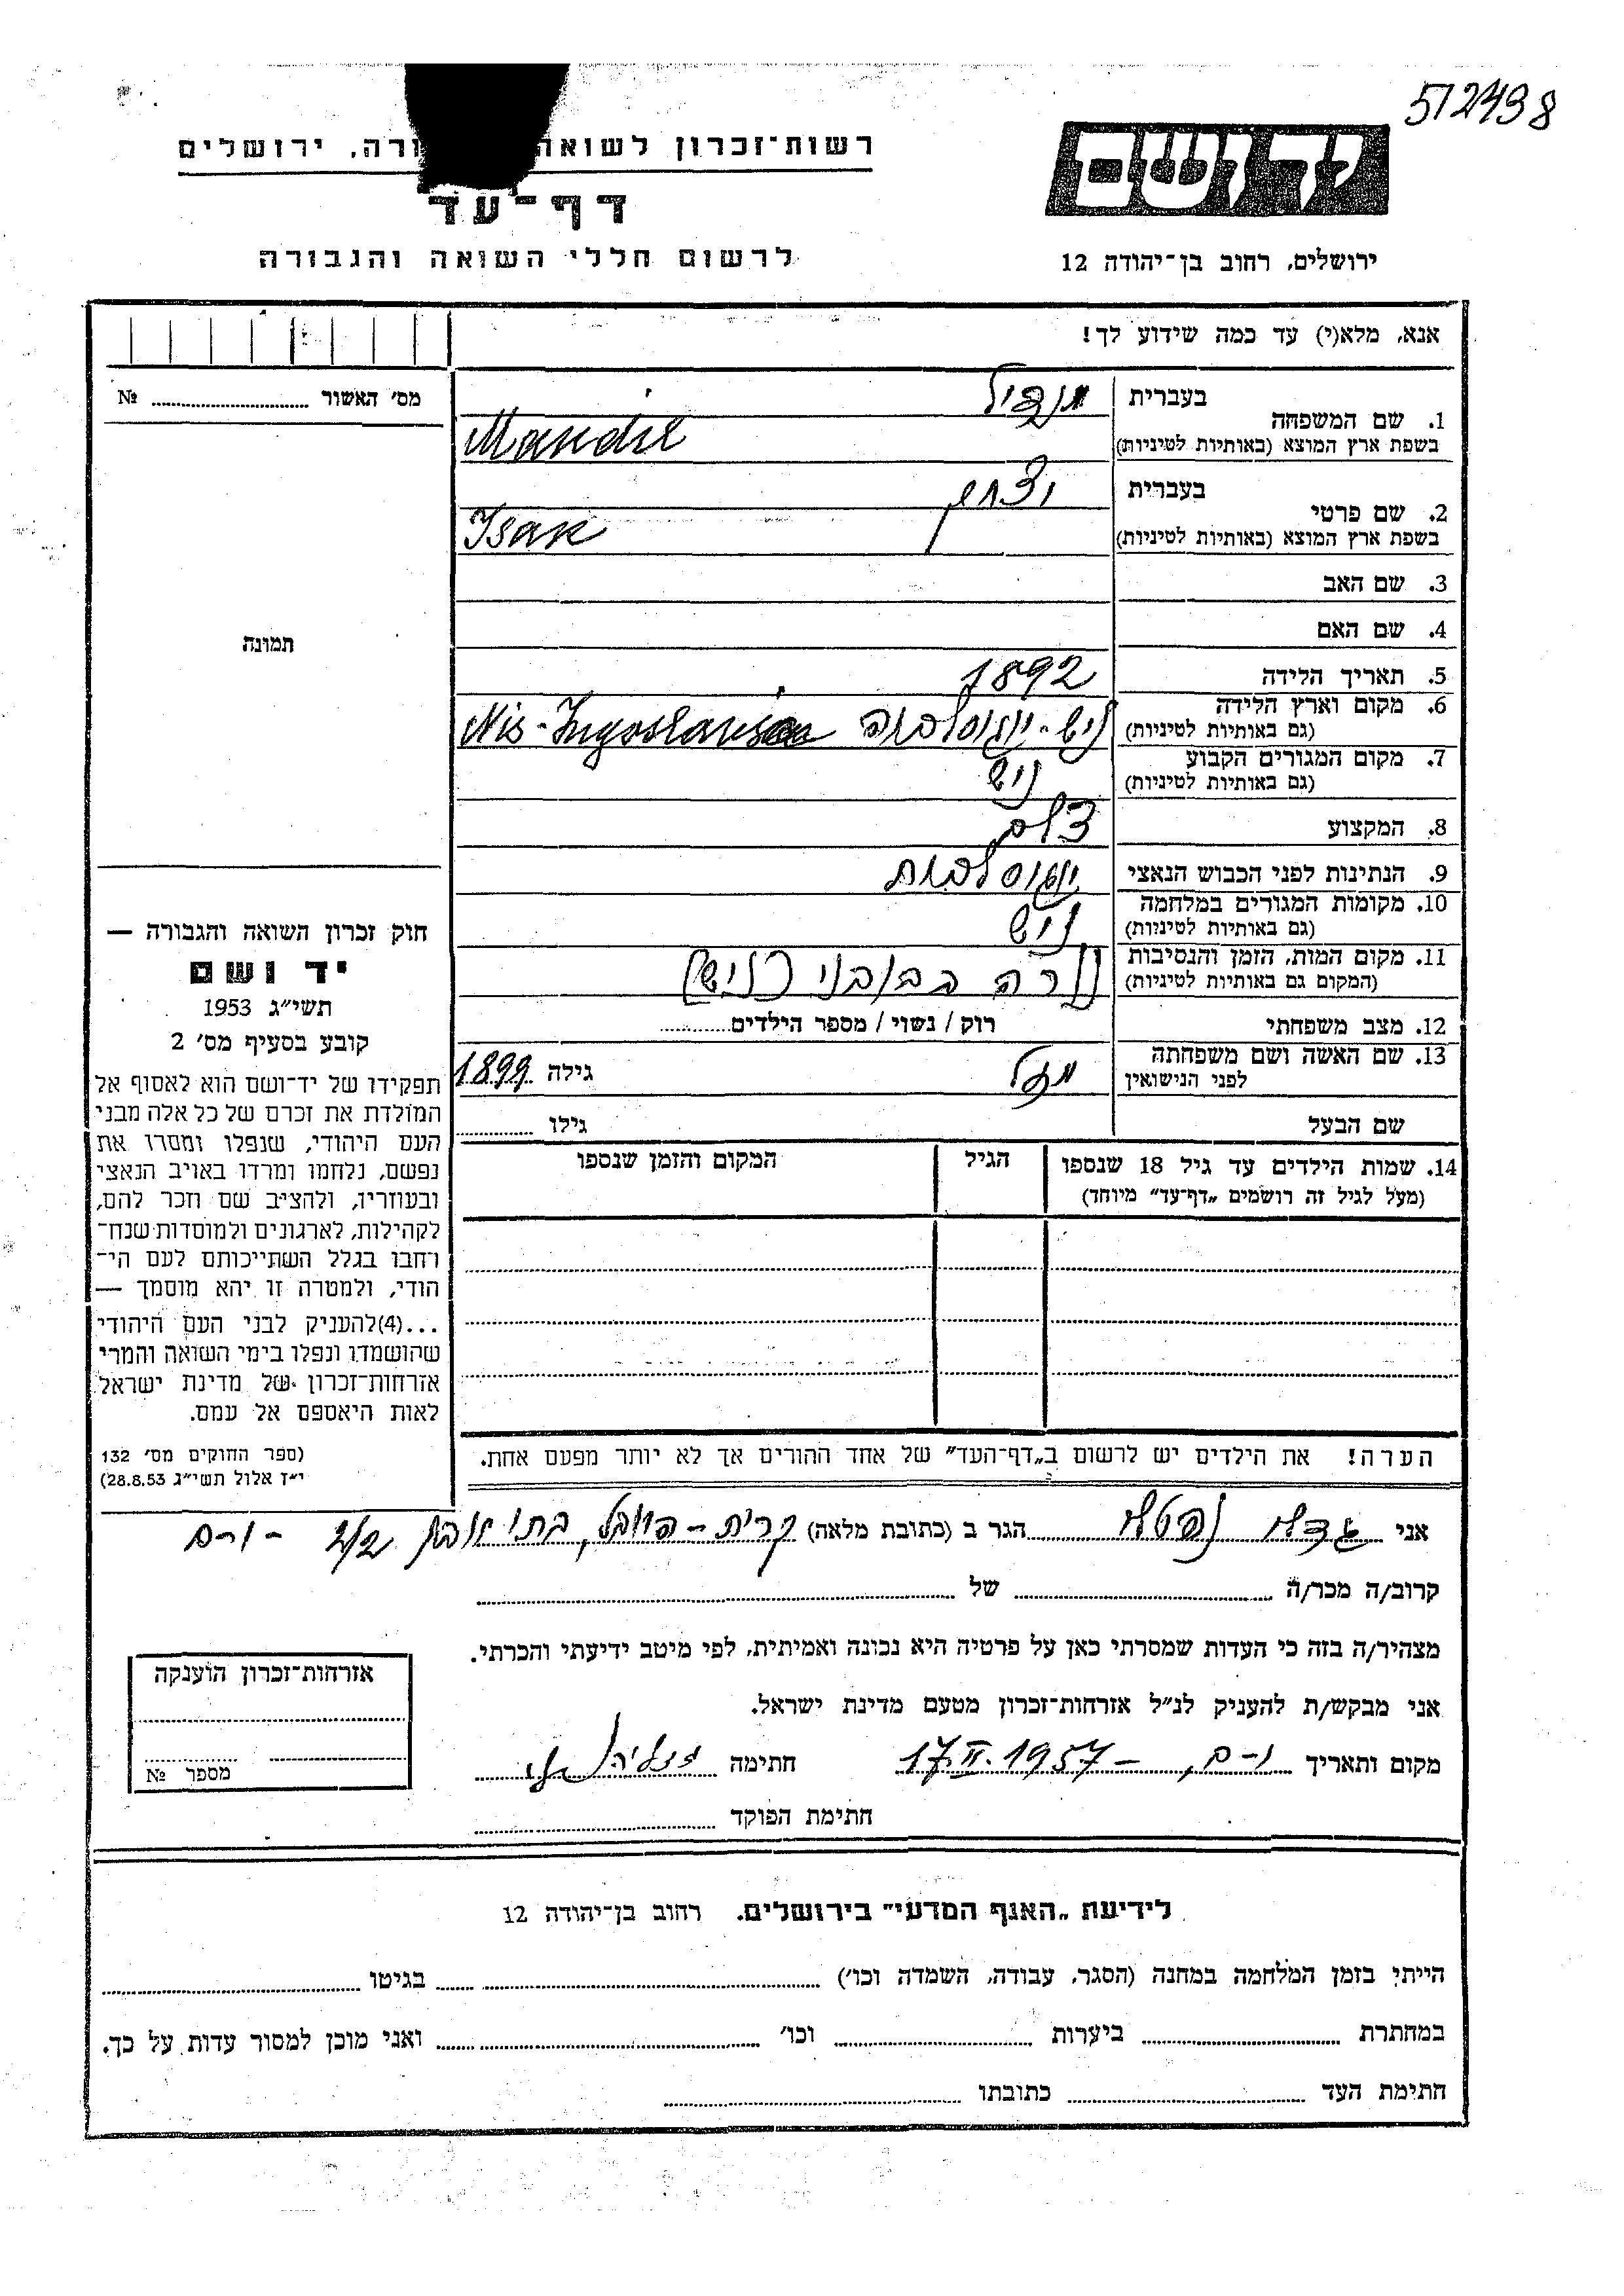 512438
רשות־זכרון לשואה ורה, ירושלים
יד ושם
דף־עד
לרשום חללי השואה והגבורה
ירושלים, רחוב בן־יהודה 12
אנא, מלא(י) עד כמה שידוע לך!
מס׳ האשור №
תמונה
בעברית מנדיל
1. שם המשפחה
בשפת ארץ המוצא (באותיות לטיניות) Mandil
בעברית יצחק
2. שם פרטי
בשפת ארץ המוצא (באותיות לטיניות) Isak
3. שם האב
4. שם האם
5. תאריך הלידה 1892
6. מקום וארץ הלידה
(גם באותיות לטיניות) ניש - יוגוסלביה Nis-
7. מקום המגורים הקבוע
(גם באותיות לטיניות) ניש
8. המקצוע צלם
9. הנתינות לפני הכבוש הנאצי
10. מקומות המגורים במלחמה
(גם באותיות לטיניות) ניש
11. מקום המות, הזמן והנסיבות
(המקום גם באותיות לטיניות) נורה בבובני (ניש)
12. מצב משפחתי רוק / נשוי / מספר הילדים
13. שם האשה ושם משפחתה
לפני הנישואין גילה 1899
שם הבעל גילו
14. שמות הילדים עד גיל 18 שנספו הגיל המקום והזמן שנספו
(מעל לגיל זה רושמים „דף־עד” מיוחד)
הערה! את הילדים יש לרשום ב„דף־העד” של אחד ההורים אך לא יותר מפעם אחת.
חוק זכרון השואה והגבורה —
יד ושם
תשי״ג 1953
קובע בסעיף מס׳ 2
תפקידו של יד־ושם הוא לאסוף אל
המולדת את זכרם של כל אלה מבני
העם היהודי, שנפלו ומסרו את
נפשם, נלחמו ומרדו באויב הנאצי
ובעוזריו, ולהציב שם וזכר להם,
לקהילות, לארגונים ולמוסדות שנח־
רבו בגלל השתייכותם לעם הי־
הודי, ולמטרה זו יהא מוסמך —
...(4)להעניק לבני העם היהודי
שהושמדו ונפלו בימי השואה והמרי
אזרחות־זכרון של מדינת ישראל
לאות היאספם אל עמם.
(ספר החוקים מס׳ 132
י״ז אלול תשי״ג 28.8.53)
אני נפטלי הגר ב (כתובת מלאה) קרית - היובל, 2/2 - י-ם
קרוב/ה מכר/ה של
מצהיר/ה בזה כי העדות שמסרתי כאן על פרטיה היא נכונה ואמיתית, לפי מיטב ידיעתי והכרתי.
אני מבקש/ת להעניק לנ״ל אזרחות־זכרון מטעם מדינת ישראל.
מקום ותאריך י-ם, - 17.II.1957 חתימה
חתימת הפוקד
אזרחות־זכרון הוענקה
מספר №
לידיעת „האגף המדעי” בירושלים. רחוב בן־יהודה 12
הייתי בזמן המלחמה במחנה (הסגר, עבודה, השמדה וכו׳) בגיטו
במחתרת ביערות וכו׳ ואני מוכן למסור עדות על כך.
חתימת העד כתובתו